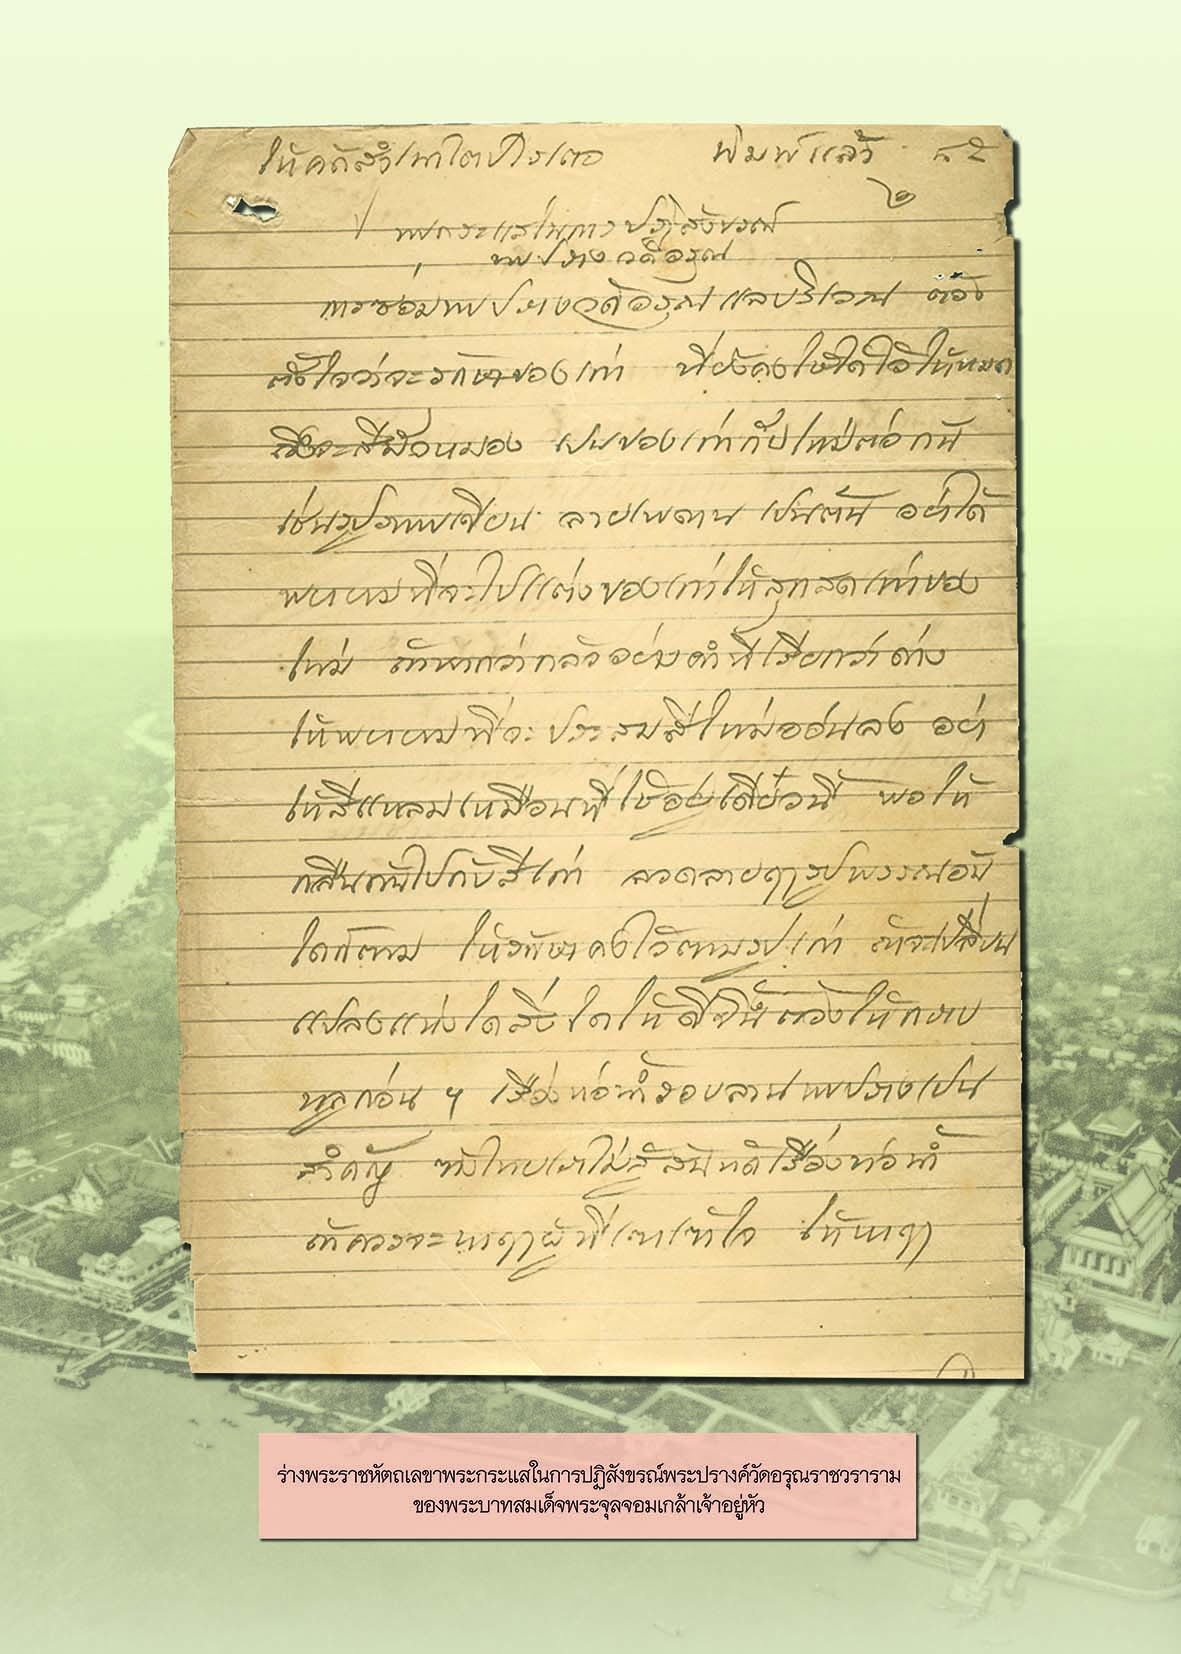 ให้คัดสำเนาใต้
พิมพ์แล้ว
๒
พระกระแสในการปฏิสังขรณ์
พระปรางวัดอรุณ
การซ่อมพระปรางวัดอรุณแลบริเวณ ต้อง
ตั้งใจว่าจะรักษาของเก่า ที่ยังคงใช้ได้ไว้ให้หมด
ถึงจะสีมัวหมอง เปนของเก่ากับใหม่ต่อกัน
เช่นรูปภาพเขียน ลายเพดาน เปนต้น อย่าได้
พยายามที่จะไปแต่งของเก่าให้สุกสดเท่าของ
ใหม่ ถ้าหากว่ากลัวอย่างคำที่เรียกว่าด่าง
ให้พยายามที่จะประสมสีใหม่อ่อนลง อย่า
ให้สีแหลมเหมือนที่ใช้อยู่เดี๋ยวนี้ พอให้
กลืนกันไปกับสีเก่า ลวดลายฤๅรูปพรรณอัน
ใดก็ตาม ให้รักษาคงไว้ตามรูปเก่า ถ้าจะเปลี่ยน
แปลงแห่งใดสิ่งใดให้ดีขึ้นต้องให้กราบ
ทูลก่อน ๆ เรื่องท่อน้ำรอบลานพระปรางเปน
สำคัญ ช่างไทยเราไม่สู้สันทัดเรื่องท่อน้ำ
ถ้าควรจะหาฤๅผู้ที่เขาเข้าใจ ให้หาฤๅ
ร่างพระราชหัตถเลขาพระกระแสในการปฏิสังขรณ์พระปรางค์วัดอรุณราชวราราม
ของพระบาทสมเด็จพระจุลจอมเกล้าเจ้าอยู่หัว